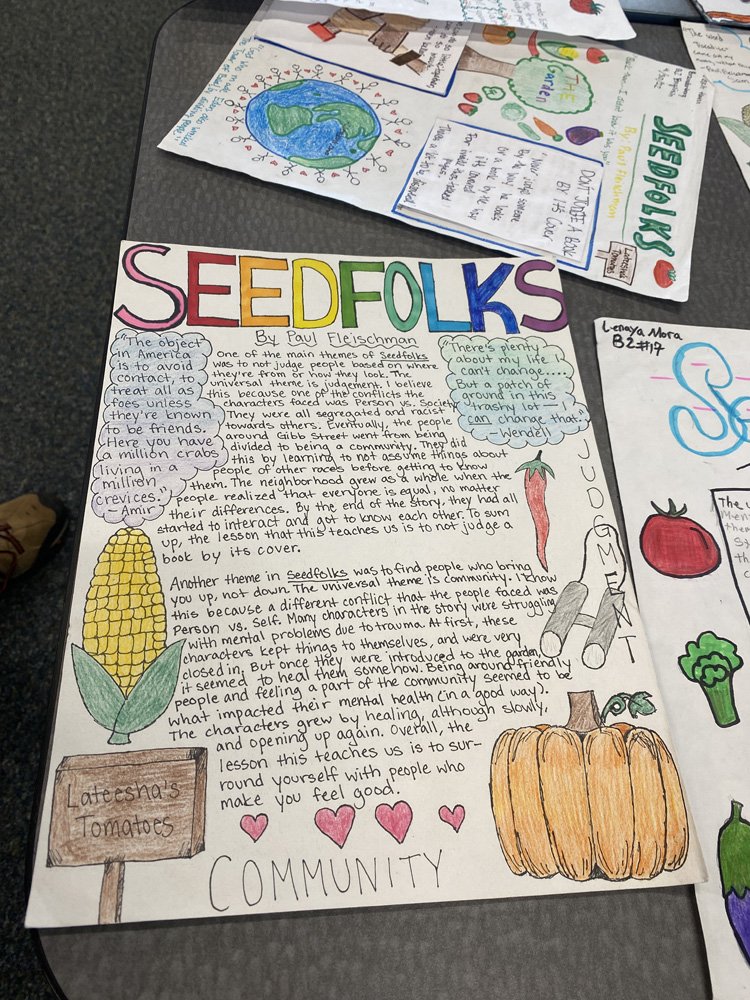 SEEDFOLKS
By Paul Fleischman
"The object
in America
is to avoid
contact, to
treat all as
foes unless
they're known
to be friends.
Here you have
a million crabs
living in a
million
crevices."
-Amir
One of the main themes of Seedfolks
was to not judge people based on where
they're from or how they look. The
universal theme is judgement. I believe
this because one of the conflicts the
characters faced was Person vs. Society.
They were all segregated and racist
towards others. Eventually, the people
around Gibb Street went from being
divided to being a community. They did
this by learning to not assume things about
people of other races before getting to know
them. The neighborhood grew as a whole when the
people realized that everyone is equal, no matter
their differences. By the end of the story, they had all
started to interact and got to know each other. To sum
up, the lesson that this teaches us is to not judge a
book by its cover.
"There's plenty
about my life I
can't change....
But a patch of
ground in this
trashy lot— I
can change that."
-Wendell
JUDGMENT
Another theme in Seedfolks was to find people who bring
you up, not down. The universal theme is community. I know
this because a different conflict that the people faced was
Person vs. Self. Many characters in the story were struggling
with mental problems due to trauma. At first, these
characters kept things to themselves, and were very
closed in. But once they were introduced to the garden,
it seemed to heal them somehow. Being around friendly
people and feeling a part of the community seemed to be
what impacted their mental health (in a good way).
The characters grew by healing, although slowly,
and opening up again. Overall, the
lesson this teaches us is to sur-
round yourself with people who
make you feel good.
Lateesha's
Tomatoes
COMMUNITY
SEEDFOLKS
By Paul Fleischman
THE
Garden
DON'T JUDGE A BOOK
BY ITS COVER
Lateesha's
Tomatoes
Lenaya Mora
B2 #17